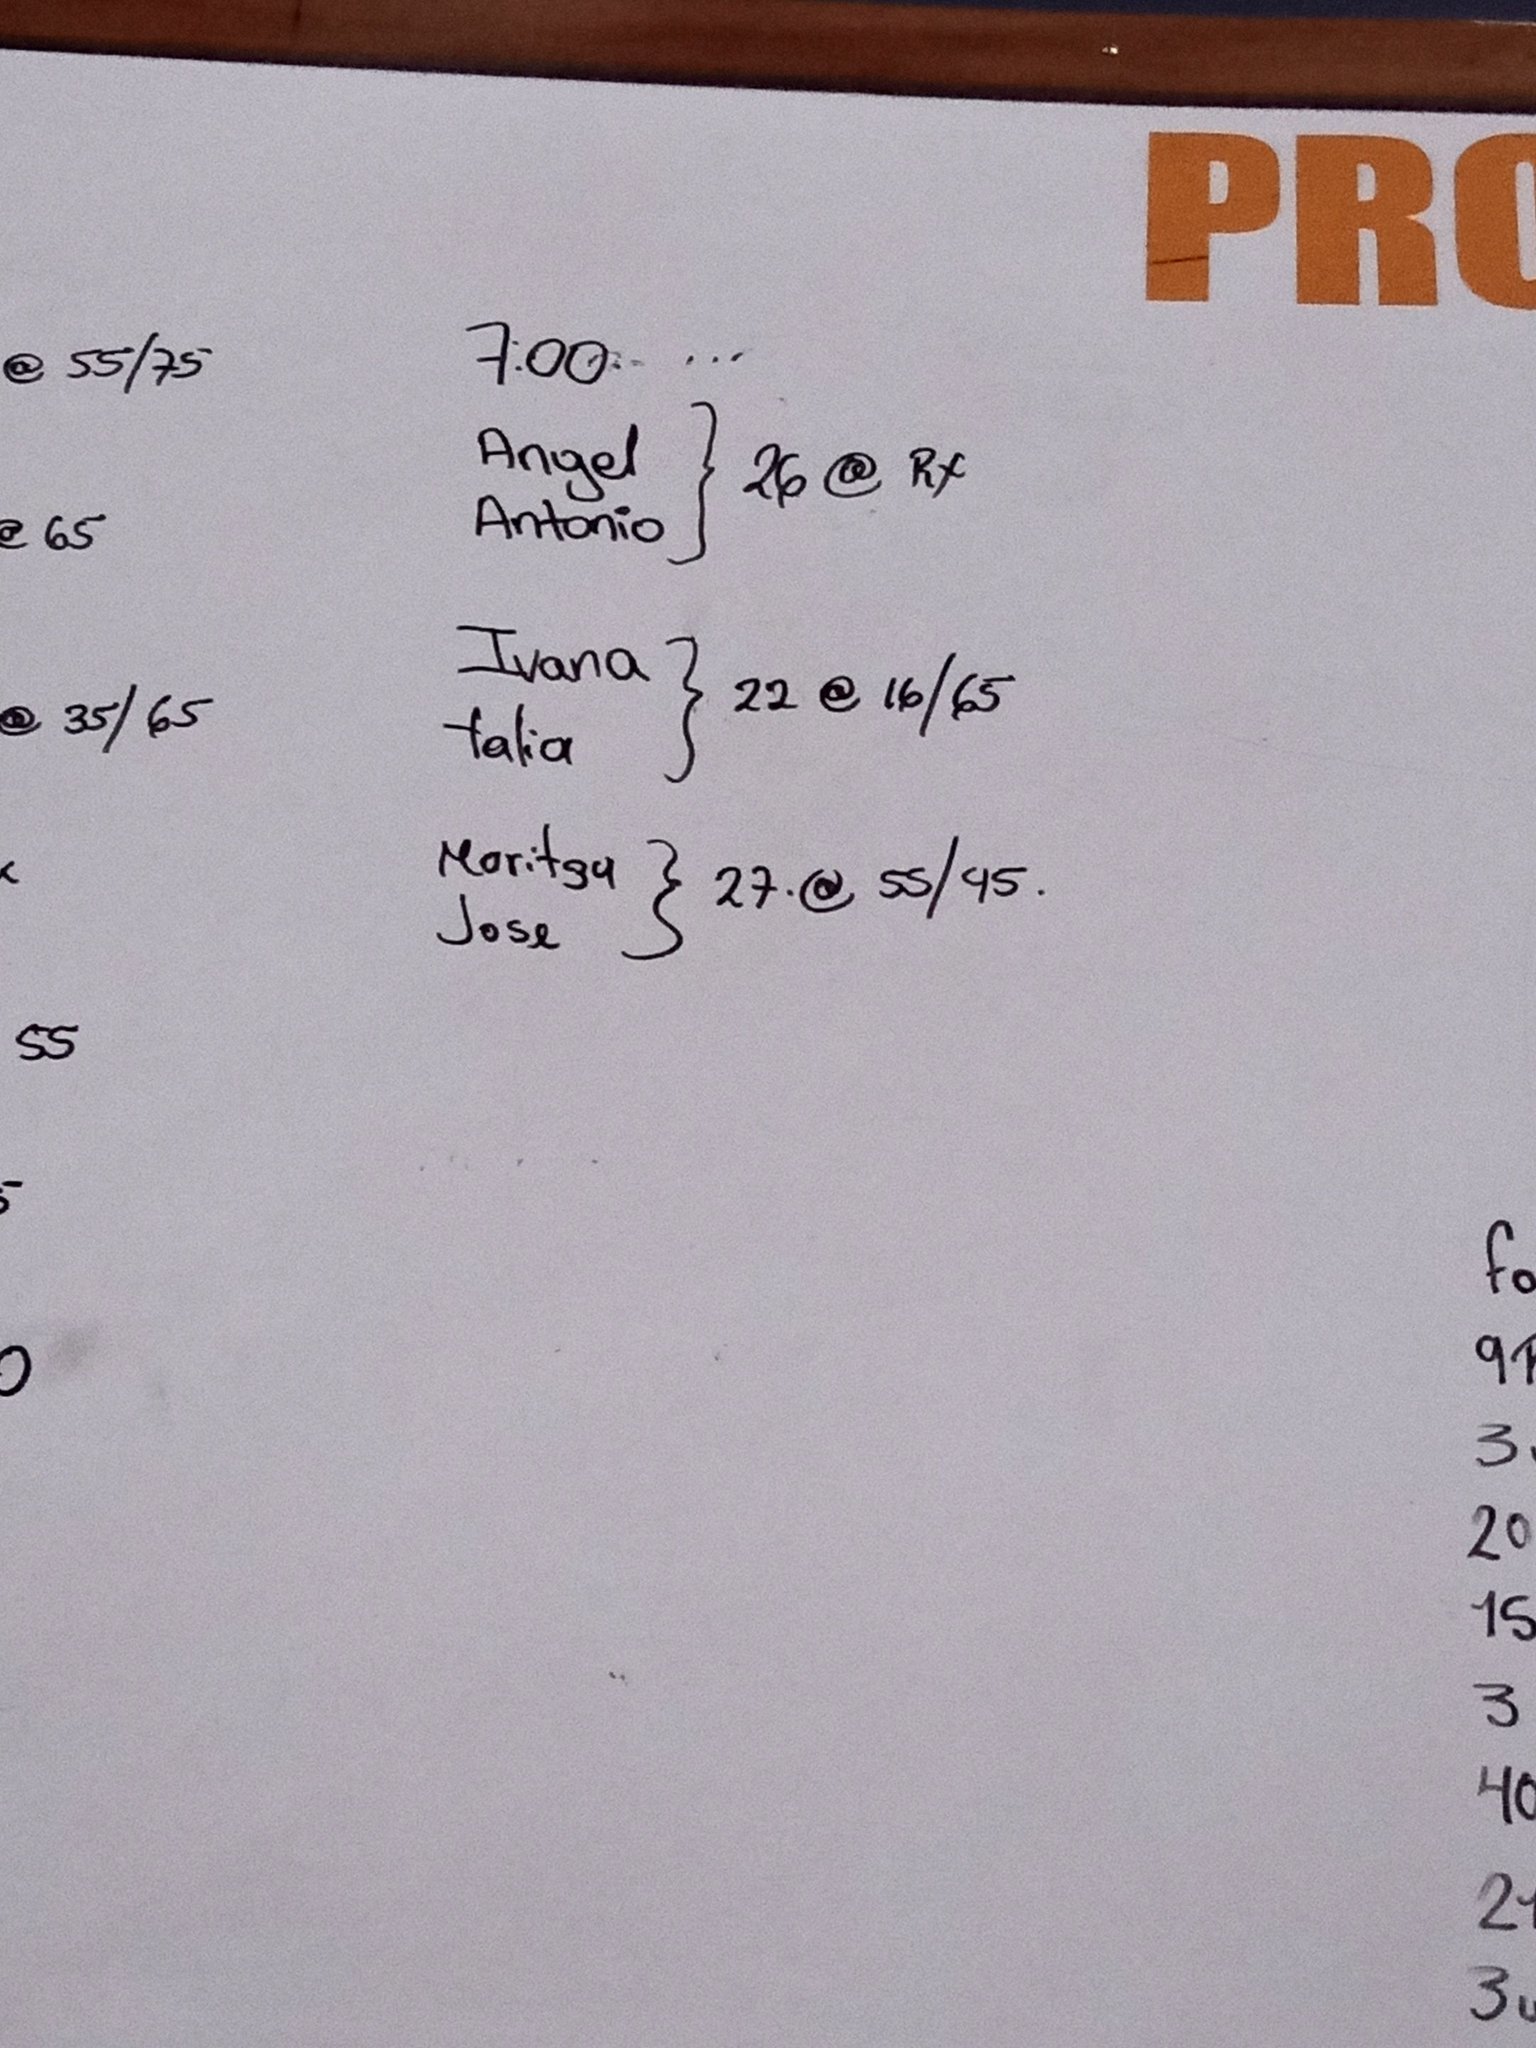 PRO
@ 55/75
@ 65
@ 35/65
55
7:00
Angel
Antonio } 26 @ Rx
Ivana
talia } 22 @ 16/65
Maritza
Jose } 27. @ 55/45.
fo
9
3
20
15
3
40
21
3